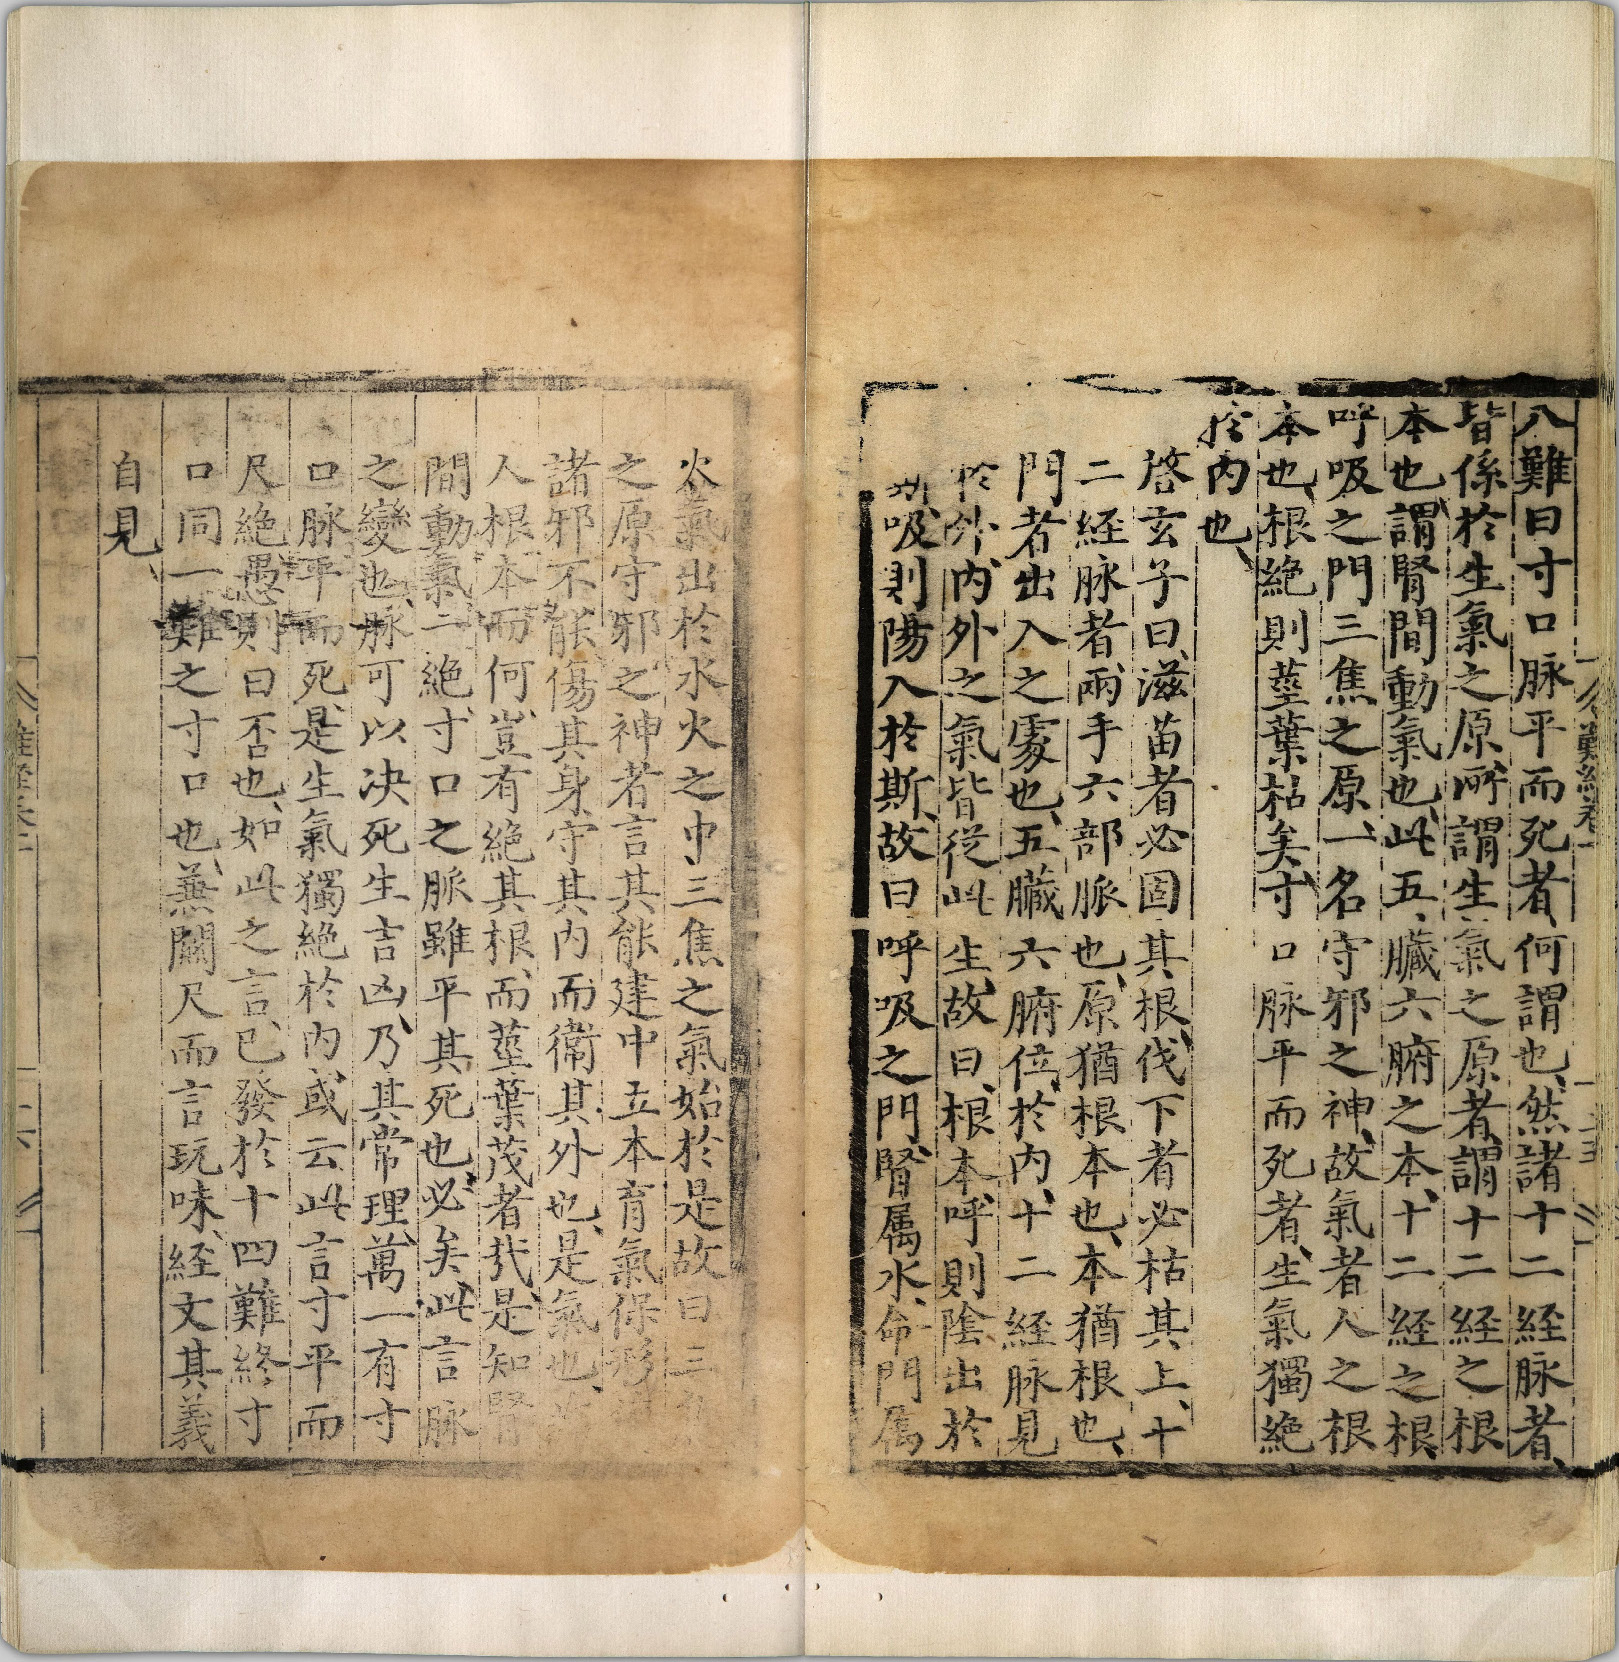 八難曰寸口脉平而死者、何謂也、然諸十二経脉者、
皆係於生氣之原、所謂生氣之原者、謂十二経之根
本也、謂腎間動氣也、此五臓六腑之本、十二経之根、
呼吸之門、三焦之原、一名守邪之神、故氣者人之根
本也、根絶則莖葉枯矣、寸口脉平而死者、生氣獨絶
於内也、
啓玄子曰、滋苗者必固其根、伐下者必枯其上、十
二経脉者、兩手六部脈也、原猶根本也、本猶根也、
門者出入之處也、五臓六腑位於内、十二経脉見
於外、内外之氣皆従此生、故曰、根本呼則陰出於
吸則陽入於斯、故曰呼吸之門、腎属水、命門属
火氣出於水火之中、三焦之氣始於是故曰三
之原守邪之神者言其能建中立本育氣保形
諸邪不能傷其身、守其内而衛其外也、是氣也、
人根本而何、豈有絶其根、而莖葉茂者哉、是知腎
間動氣一絶、寸口之脈雖平其死也、必矣、此言脉
之變也、脉可以决死生吉凶、乃其常理、萬一有寸
口脉平而死、是生氣獨絶於内、或云此言寸平而
尺絶、愚則曰否也、如此之言、已發於十四難終寸
口同一難之寸口也、無關尺而言玩味、経文其義
自見、
難経巻一